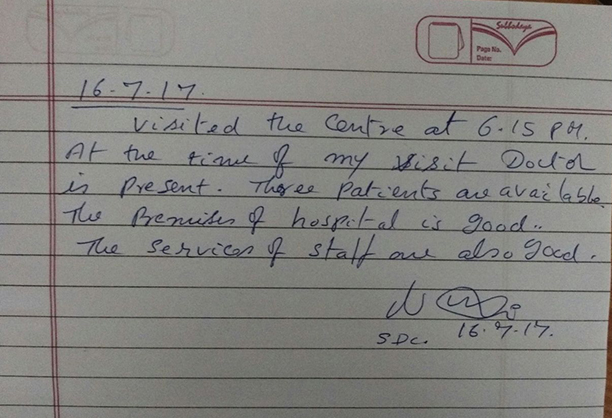 Page No.
Date:
16-7-17.
Visited the Centre at 6.15 PM.
At the time of my visit Doctor
is present. Three patients are available.
The Premises of hospital is good..
The Services of staff are also good.
SDC. 16.7.17.